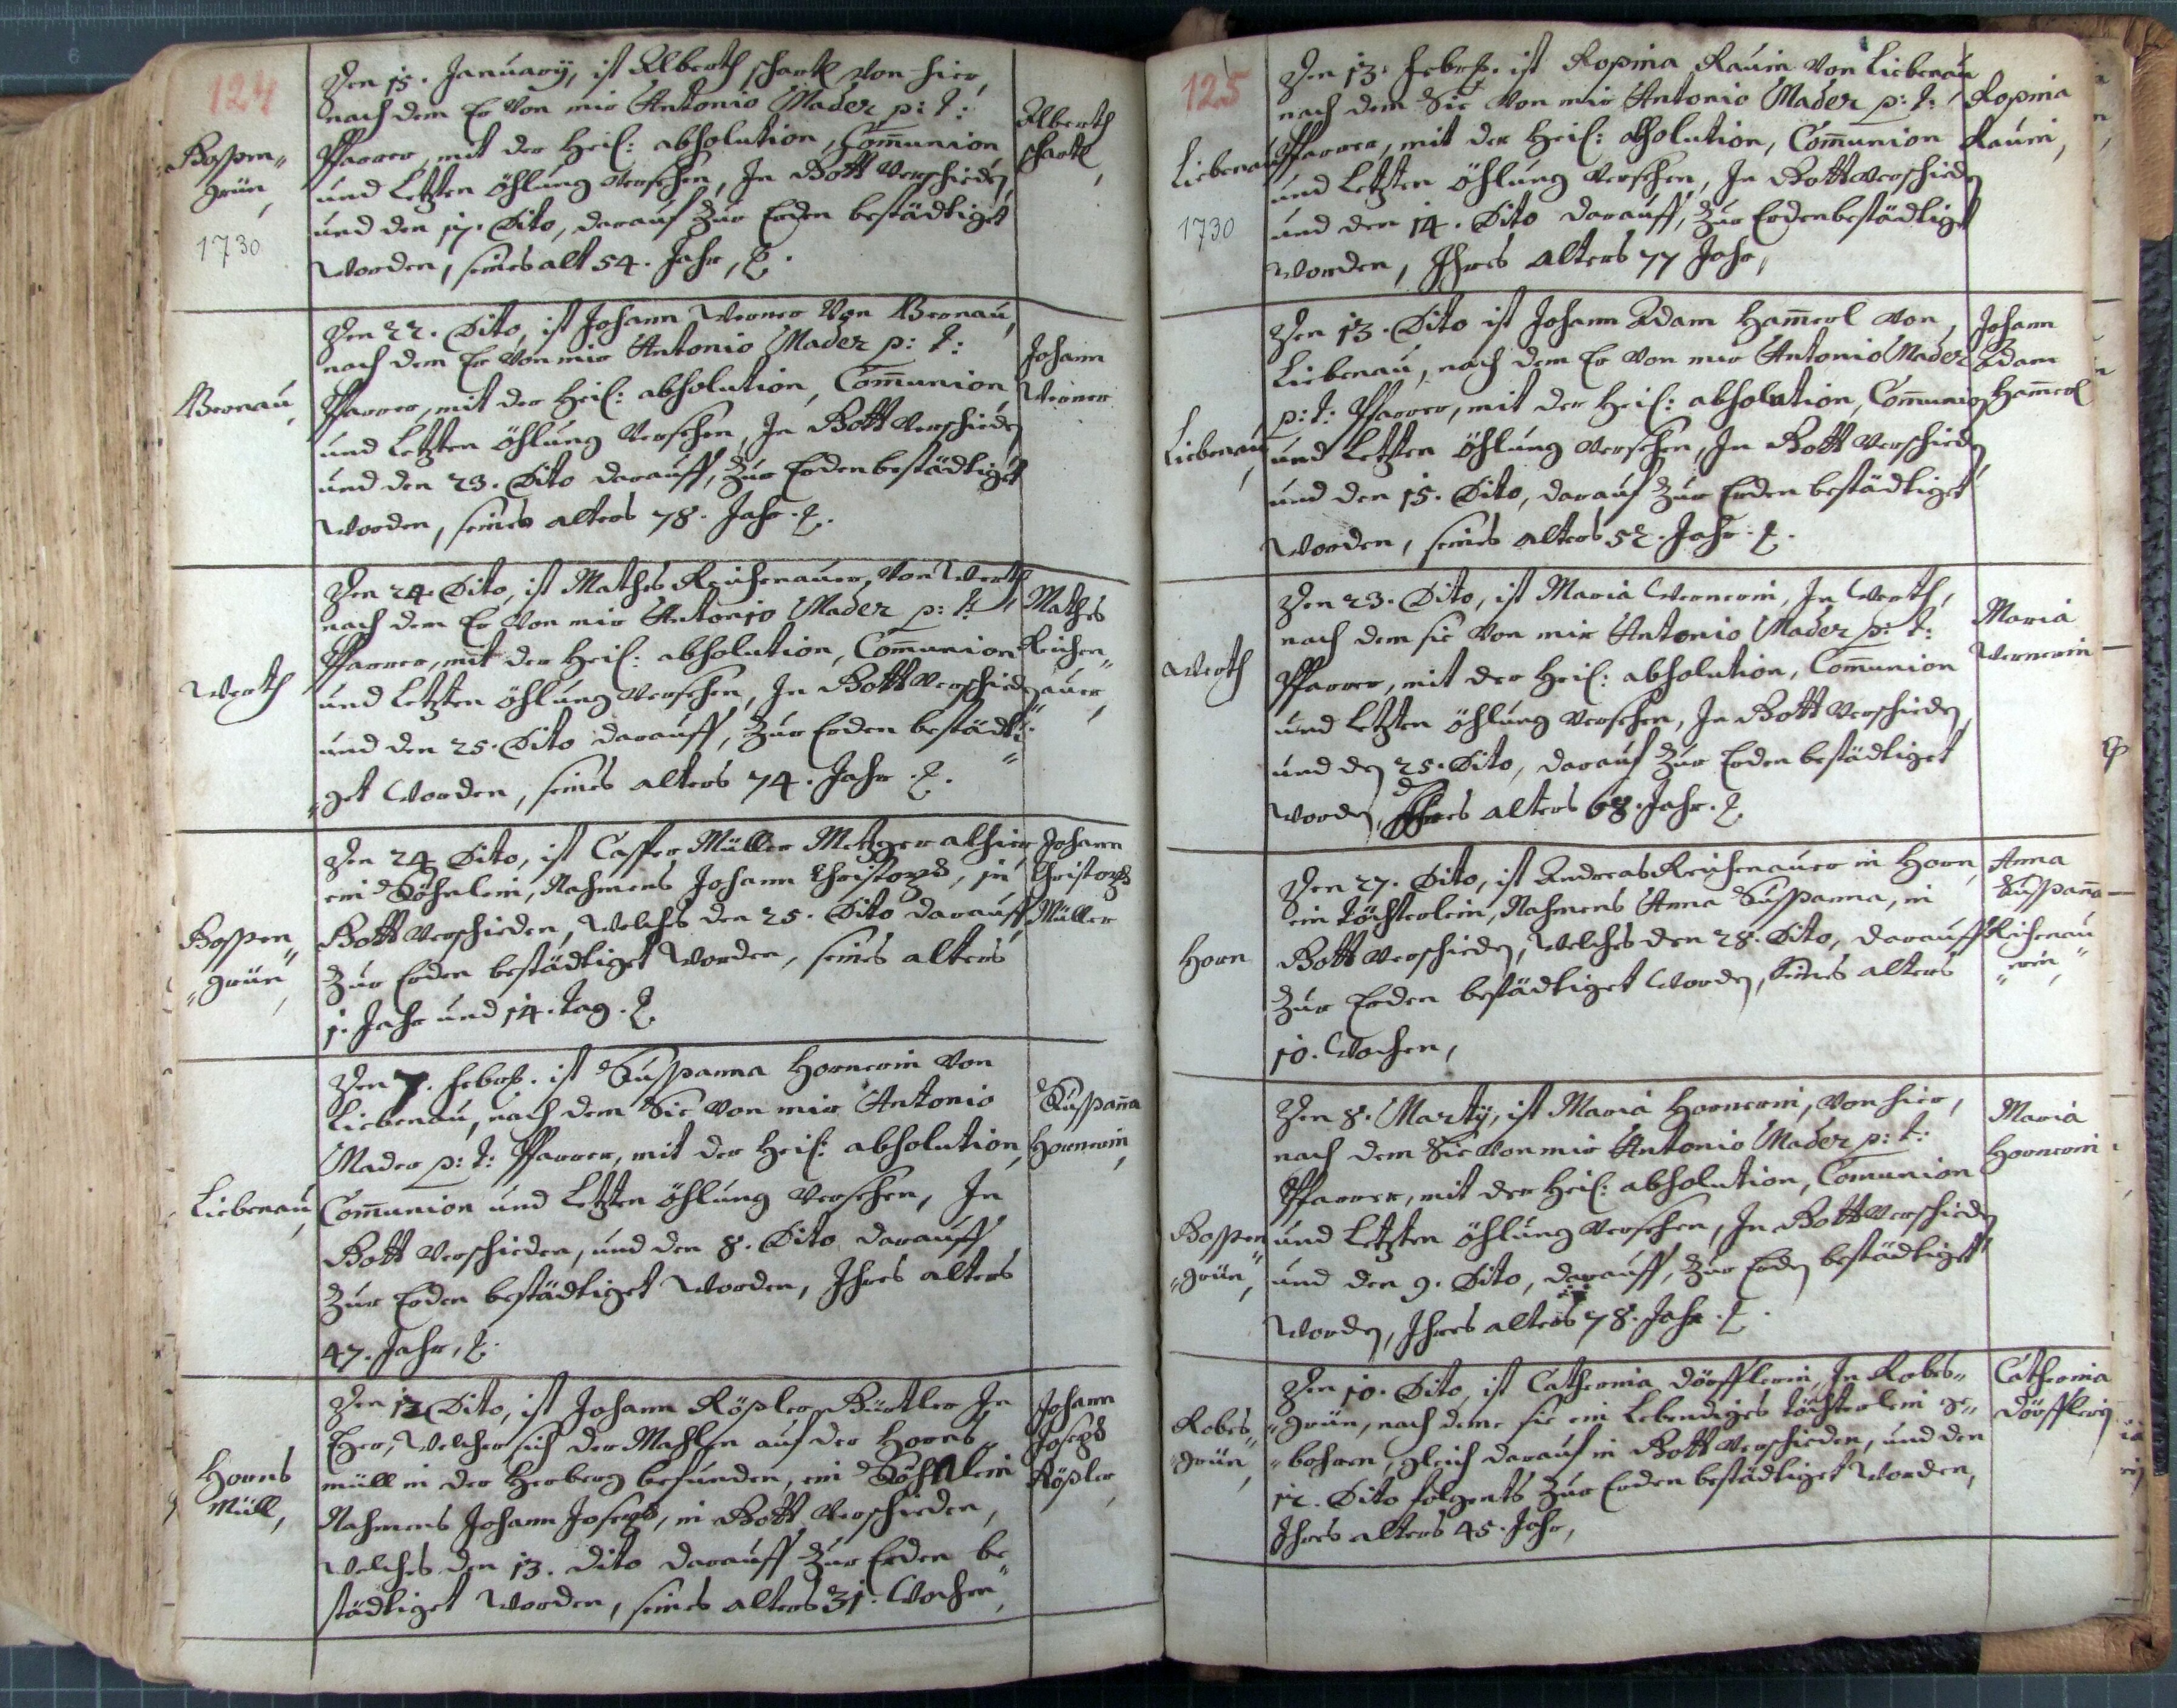 124
Bossen„
grün,
1730
Den 15. January, ist Alberth schartl von hier,
nach dem Er von mir Antonio Mader p: t:
Pfarrer, mit der Heil: absolution, Com̄union
und Letzten öhlung versehen, In Gott verschieden,
und den 17. Dito, darauf zur Erden bestädtiget
worden, seines alt 54. Jahr, .
Alberth
schartl,
Bernau,
Den 22. Dito, ist Johann Werner von Bernau,
nach dem Er von mir Antonio Mader p: t:
Pfarrer, mit der Heil: absolution, Com̄union,
und Letzten öhlung versehen, In Gott verschieden
und den 23. Dito darauff, zur Erden bestädtiget
worden, seines alters 78. Jahr.
Johann
Werner
Werth
Den 24. Dito, ist Mathes Reichenauer, von Werth
nach dem Er von mir Antonio Mader p: t:
Pfarrer, mit der Heil: absolution, Com̄union
und Letzten öhlung versehen, In Gott verschieden
und den 25. Dito darauff, zur Erden bestädti„
„get worden, seines alters 74. Jahr.
Mathes
Reichen„
„auer,
Bossen„
„grün,
Den 24. Dito, ist Casper Müller Metzger alhier
ein Söhnlein, Nahmens Johann Christoph, in
Gott verschieden, welches den 25. Dito darauff
zur Erden bestädtiget worden, seines alters
1. Jahr und 14. tag.
Johann
Christoph
Müller
Liebenau,
Den 7. febr. ist Sussanna Hornerin von
Liebenau, nach dem Sie von mir Antonio
Mader p: t: Pfarrer, mit der Heil: absolution,
Com̄union und Letzten öhlung versehen, In
Gott verschieden, und den 8. Dito darauff
zur Erden bestädtiget worden, Ihres alters
47. Jahr,
Sussan̄a
Hornerin,
Horns
Müll,
Den 12 Dito, ist Johann Rößler, Bürtler In
Eger, welcher sich der Mahlen auf der Horns„
müll in der Herberg befunden, ein Söhnlein
Nahmens Johann Joseph, in Gott verschieden,
welches den 13. dito darauff zur Erden be„
städtiget worden, seines alters 31. Wochen,
Johann
Joseph
Rößler,
125
Liebenau
1730
Den 13. febr. ist Rosina Raüin von Liebenau
nach dem Sie von mir Antonio Mader p: t:
Pfarrer, mit der Heil: absolution, Com̄union
und Letzten öhlung versehen, In Gott verschieden
und den 14. Dito darauff, zur Erden bestädtiget
worden, Ihres alters 77 Jahr,
Rosina
Raüin,
Liebenau,
Den 13. Dito ist Johann Adam Ham̄erl von
Liebenau, nach dem Er von mir Antonio Mader
p: t: Pfarrer, mit der Heil: absolution, Com̄union
und Letzten öhlung versehen, In Gott verschieden
und den 15. Dito, darauf zur Erden bestädtiget
worden, seines alters 52. Jahr.
Johann
Adam
Ham̄erl
Werth
Den 23. Dito, ist Maria Wernerin, In Werth,
nach dem sie von mir Antonio Mader p: t:
Pfarrer, mit der Heil: absolution, Com̄union
und Letzten öhlung versehen, In Gott verschieden,
und den 25. Dito, darauf zur Erden bestädtiget
worden, Ihres alters 68. Jahr.
Maria
Wernerin
Horn
Den 27. Dito, ist Andreas Reichenauer in Horn,
ein töchterlein, Nahmens Anna Sussanna, in
Gott verschieden, welches den 28. Dito, darauff
zur Erden bestädtiget worden, seines alters
10. Wochen,
Anna
Sussan̄a
Reichenau„
„erin,
Bossen„
„grün,
Den 8. Marty, ist Maria Hornerin, von hier,
nach dem Sie von mir Antonio Mader p: t:
Pfarrer, mit der Heil: absolution, Comunion
und Letzten öhlung versehen, In Gott verschieden
und den 9. Dito, darauff, zur Erden bestädtiget
worden, Ihres alters 78. Jahr.
Maria
Hornerin
Robes„
„grün,
Den 10. Dito, ist Catherina Dörfflerin, In Robes„
„grün, nach deme sie ein Lebendiges töchterlein ge„
„bohren, gleich darauf in Gott verschieden, und den
12. Dito folgents zur Erden bestädtiget worden,
Ihres alters 45. Jahr,
Catherina
Dörfflerin